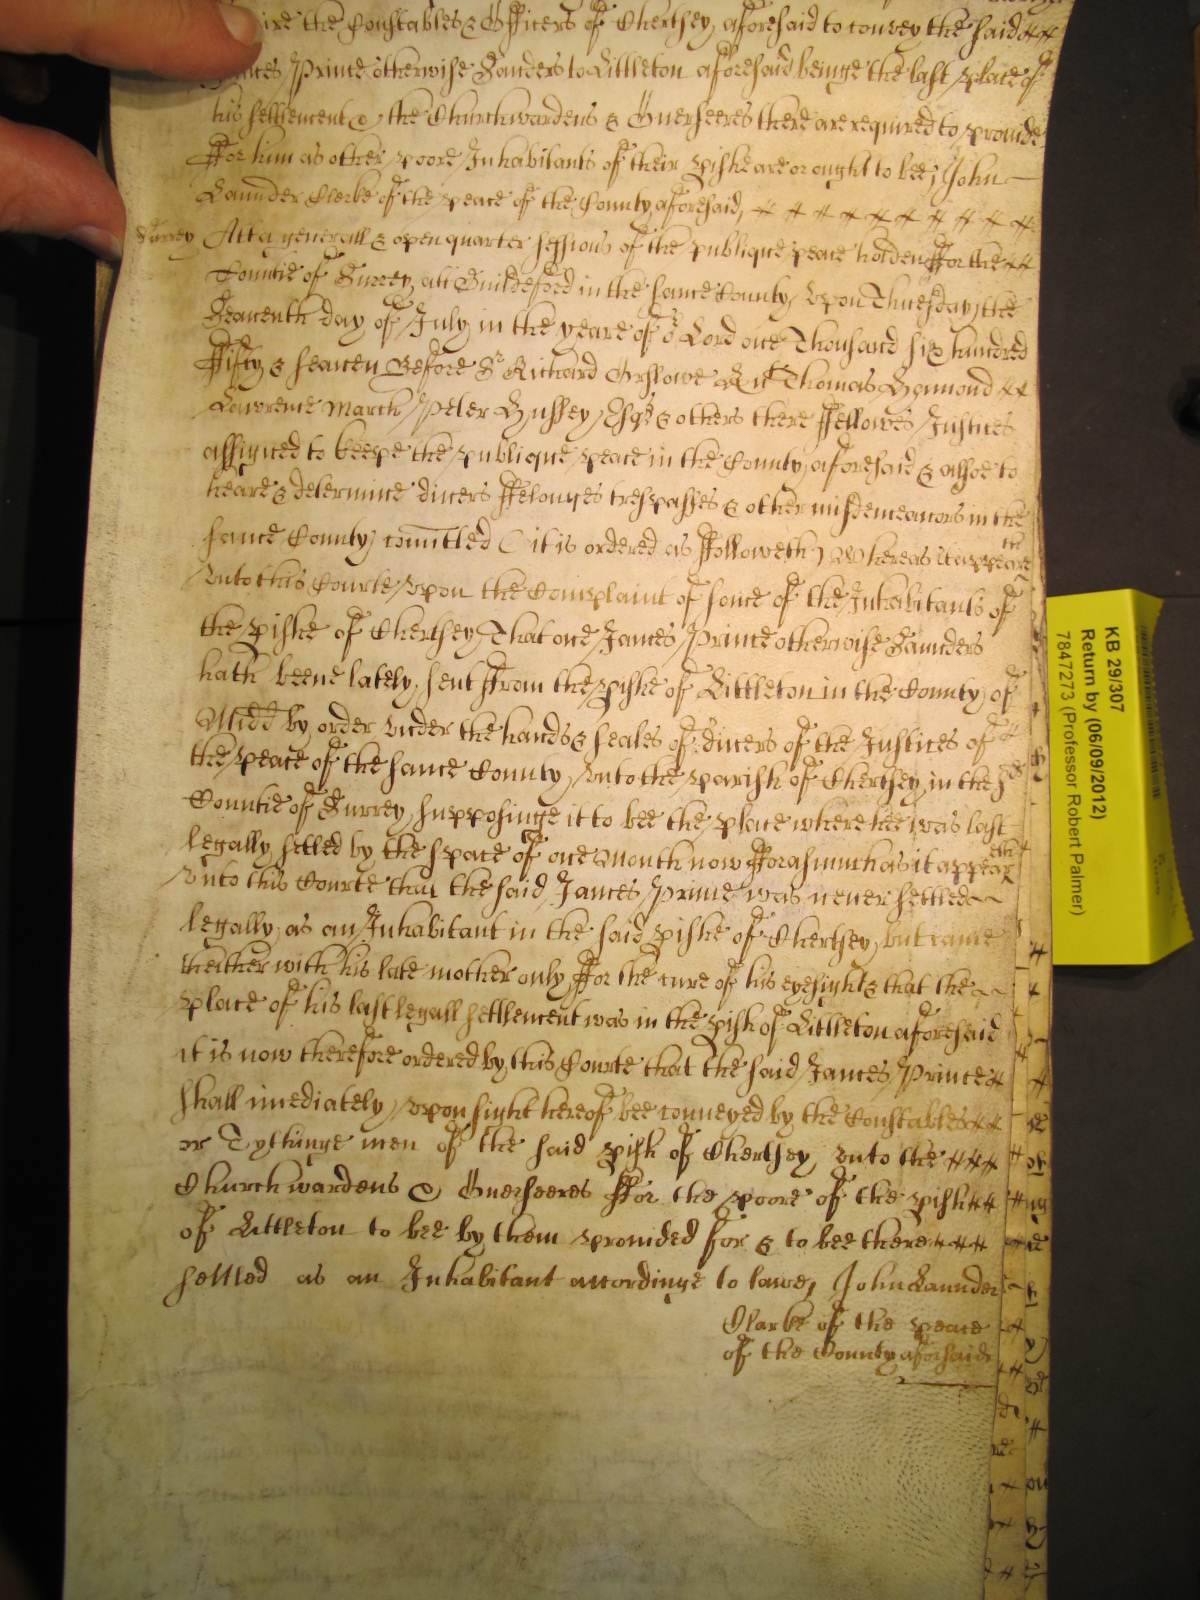 ire the Constables & Officers of Chertsey aforesaid to convey the said
James Prince otherwise Sanders to Littleton aforesaid beinge the last place of
his settlement & the Churchwardens & Overseeres there are required to provide
ffor him as other poore Inhabitants of their pishe are or ought to bee, John
Launder Clerke of the peace of the County aforesaid,
Surrey Att a generall & open quarter sessions of the publique peace holden ffor the
Countie of Surrey att Guildeford in the same County upon Thuesday the
Seaventh day of July in the yeare of or Lord one Thousand six hundred
ffifty & seaven Before Sr Richard Onslowe Knt Thomas Hymond
Lawrence March Peter Hussey Esqrs & others there ffellowes Justices
assigned to keepe the publique peace in the County aforesaid & allsoe to
heare & determine divers ffelonyes trespasses & other misdemeanors in the
same County comitted it is ordered as ffolloweth, Whereas it appeareth
unto this Courte upon the Complaint of some of the Inhabitants of
the pishe of Chertsey, That one James Prince otherwise Saunders
hath beene lately sent ffrom the pishe of Littleton in the County of
Midd by order under the hands & seales of divers of the Justices of
the peace of the same County, unto the parish of Chertsey in the sd
Countie of Surrey, supposinge it to bee the place where hee was last
legally setled by the space of one Month now fforasmuch as it appeareth
unto this Courte that the said James Prince was never settled
legally as an Inhabitant in the said pishe of Chertsey, but came
theither with his late mother only ffor the cure of his eyesight & that the
place of his last legall settlement was in the pish of Littleton aforesaid
it is now therefore ordered by this Courte that the said James Prince
shall imediately upon sight hereof bee conveyed by the Constables
or Tythinge men of the said pish of Chertsey unto the
Churchwardens & Overseeres ffor the poore of the pish
of Littleton to bee by them provided for & to bee there
settled as an Inhabitant accordinge to lawe, John Launder
Clarke of the peace
of the County aforsaide
KB 29/307
Return by (06/09/2012)
7847273 (Professor Robert Palmer)